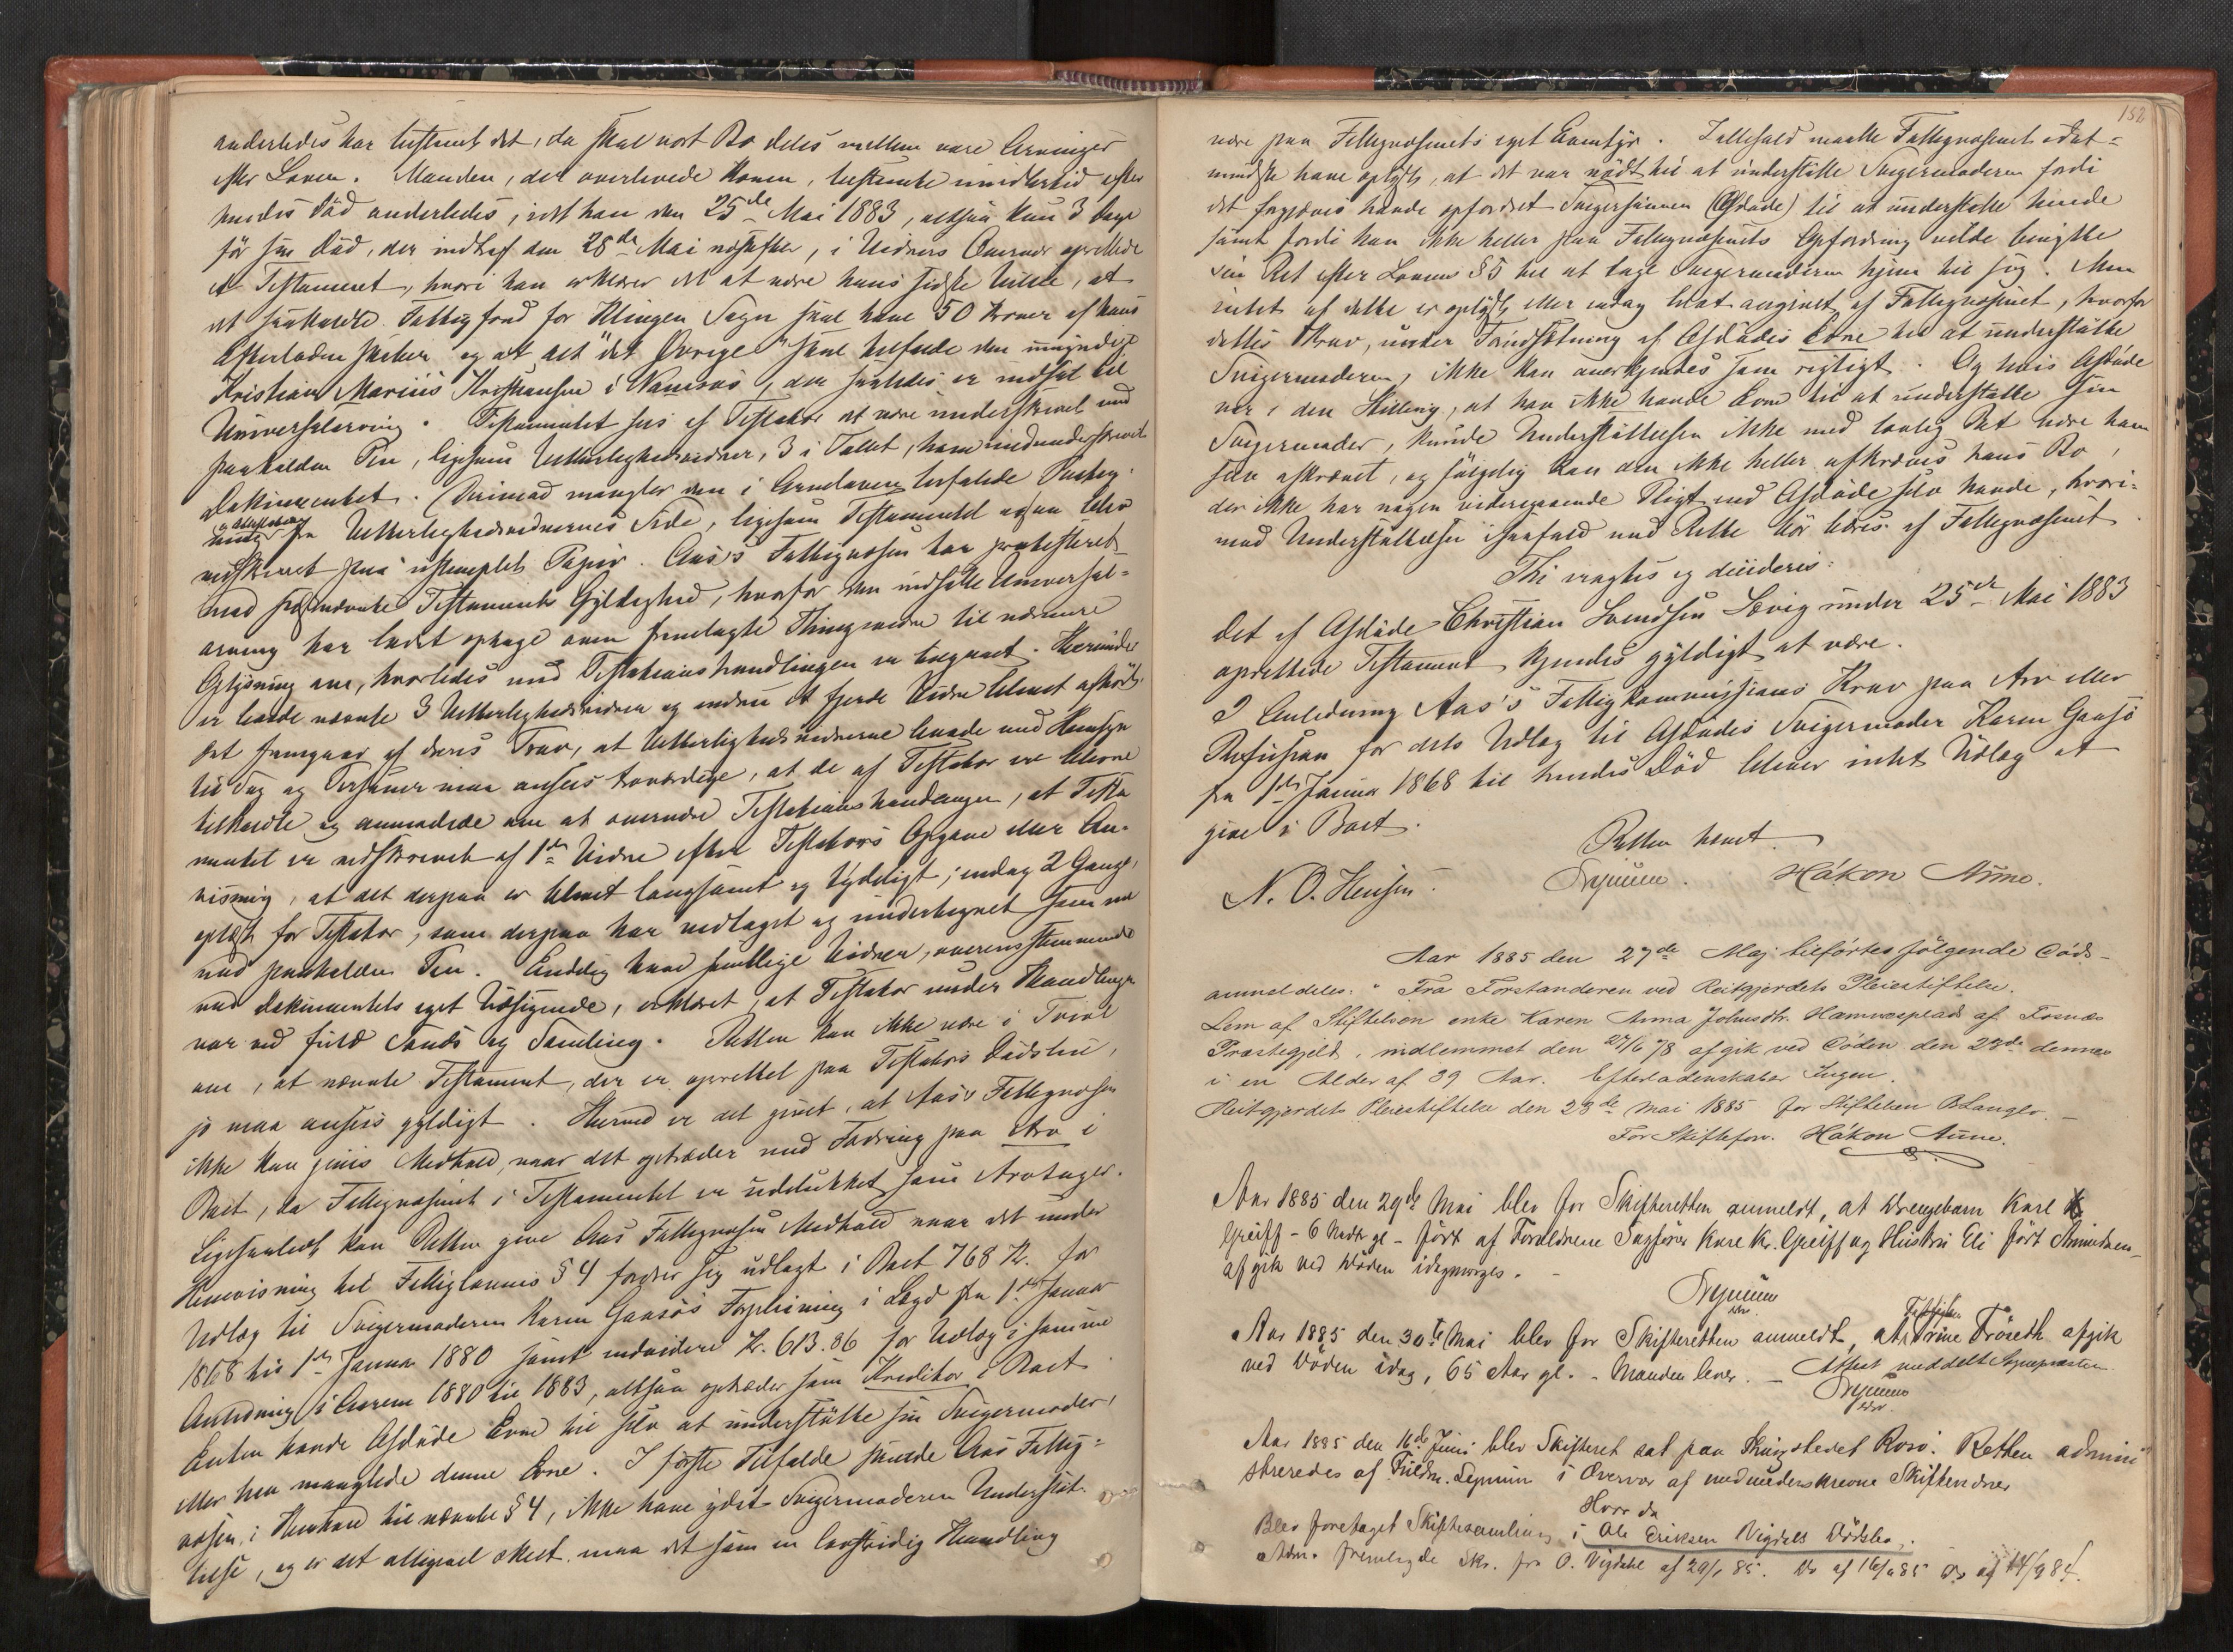 anderledes har bestemt det, da skal vort Bo deles mellem vore Arvinger
efter Loven. Manden, der overlevede Konen, bestemte imidlertid efter
hendes Död anderledes, idet han den 25de Mai 1883, altsaa kun 3 Dage
för sin Död, der indtraf den 28de Mai næstefter, i Vidners Overvær oprettede
et Testament, hvori han erklærer det at være hans sidste Villie, at
det saakaldte Fattigfond for Klingen Sogn skal have 50 Kroner af hans
Efterladenskaber og at alt "det Øvrige" skal tilfalde den umyndige
Kristian Marius Kristiansen i Namsos, der saaledes er indsat til
Universalarving. Testamentet sees af Testator at være underskrevet med
paaholden Pen, ligesom Vitterlighedsvidner, 3 i Tallet, have medunderskrevet
Dokumentet. Derimod mangler den i Arveloven befalede Paateg-
ning og Attestation fra Vitterlighedsvidnernes Side, ligesom Testamentet ogsaa blev
nedskrevet paa ustemplet Papir. Aas's Fattigvæsen har protesteret
mod förnævnte Testaments Gyldighed, hvorfor den indsatte Universal-
arving har ladet optage oven fremlagte Thingsvidne til nærmere
Oplysning om, hvorledes med Testationshandlingen er tilgaaet. Herunder
er baade nævnte 3 Vitterlighedsvidner og endnu et fjerde Vidne blevet afhört.
Det fremgaar af deres Prov, at Vitterlighedsvidnerne baade med Hensyn
til Sag og Personer maa ansees troværdige, at de af Testator ere blevne
tilkaldte og anmodede om at overvære Testationshandlingen, at Testa
mentet er nedskrevet af 1ste Vidne efter Testators Opgave eller An-
visning, at det derpaa er blevet langsomt og tydeligt, endog 2 Gange,
oplæst for Testator, som derpaa har vedtaget og undertegnet samme
med paaholden Pen. Endelig have samtlige Vidner, overensstemmende
med Dokumentets eget Udsigende, erklæret, at Testator under Handlingen
var ved fuld Sands og Samling. Retten kan ikke være i Tvivl
om, at nævnte Testament, der er oprettet paa Testators Dödsleie,
jo maa ansees gyldigt. Hermed er det givet, at Aas's Fattigvæsen
ikke kan gives Medhold, naar det optræder med Fordring paa Arv i
Boet, da Fattigvæsenet i Testamentet er udelukket som Arvtager.
Ligesaalidt kan Retten give Aas Fattigvæsen Medhold naar det under
Henvisning til Fattiglovens § 4 fordrer sig udlagt i Boet 768 Kr. for
Udlæg til Svigermoderen Karen Gansös Forpleining i Lægd fra 1ste Januar
1868 til 1ste Januar 1880 samt endvidere Kr. 613.86 for Udlæg i samme
Anledning i Aarene 1880 til 1883, altsaa optræder som Kreditor i Boet.
Enten havde Afdöde Evne til selv at understötte sin Svigermoder,
eller han manglede denne Evne. I förste Tilfælde skulde Aas Fattig-
væsen, i Henhold til nævnte § 4, ikke have ydet Svigermoderen Understöt-
telse, og er det alligevel skeet maa det som en lovstridig Handling
152
være paa Fattigvæsenets eget Eventyr. I alfald maatte Fattigvæsenet idet-
mindste have oplyst, at det var nödt til at understötte Svigermoderen fordi
det forgjæves havde opfordret Svigersönnen (Afdöde) til at understötte hende
samt fordi han ikke heller paa Fattigvæsenets Opfordring vilde benytte
sin Ret efter Lovens § 5 til at tage Svigermoderen hjem til sig. Men
intet af dette er oplyst eller endog blot angivet af Fattigvæsenet, hvorfor
dettes Krav, under Forudsætning af Afdödes Evne til at understötte
Svigermoderen, ikke kan anerkjendes som rigtigt. Og hvis Afdöde
var i den Stilling, at han ikke havde Evne til at understötte sin
Svigermoder, kunde Understöttelsen ikke med lovlig Ret være ham
selv afkrævet, og fölgelig kan den ikke heller afkræves hans Bo,
der ikke har nogen videregaaende Pligt end Afdöde selv havde, hvori-
mod Understöttelsen isaafald med Rette bör bæres af Fattigvæsenet.
Thi eragtes og decideres:
Det af Afdöde Christian Svendsen Lovig under 25de Mai 1883
oprettede Testament kjendes gyldigt at være.
I Anledning Aas's Fattigkommissions Krav paa Arv eller
Refusion for dets Udlæg til Afdödes Svigermoder Karen Gansö
fra 1ste Januar 1868 til hendes Död bliver intet Udlæg at
give i Boet.
Retten hævet.
N. O. Hensen. Håkon Aune.
Aar 1885 den 27de Maj tilförtes fölgende Döds-
anmeldelse: "Fra Forstanderen ved Reitgjerdets Pleiestiftelse.
Lem af Stiftelsen enke Karen Anna Johnsdtr. Hamnesplads af Fosnæs
Præstegjeld, indlemmet den 27/6 78 afgik ved Döden den 23de dennes
i en Alder af 39 Aar. Efterladenskaber Ingen.
Reitgjerdets Pleiestiftelse den 23de Mai 1885 for Stiftelsen B Langlo.
For Skiftefor. Håkon Aune.
Aar 1885 den 29de Mai blev for Skifteretten anmeldt, at Drengebarn Karl
Greiff - 6 Mdr gl - född af Forældrene Sagförer Karl Kr. Greiff og Hustru Eli född Amundsen -
afgik ved Döden idagmorges. -
Aar 1885 den 30te Mai blev for Skifteretten anmeldt, at Trine Fröseth afgik
ved Döden idag, 65 Aar gl. - Manden lever. - Attest meddelt Sognepræsten.
Aar 1885 den 16de Juni blev Skifteret sat paa Thingstedet Rosvi. Retten admini
streredes af Fuldm. i Overvær af medunderskrevne Skiftevidner
Hvor da
Blev foretaget Skiftesamling i Ole Eriksen Vigdals Dödsbo.
Adm. fremlagde Skr. fra O. Vigdahl af 29/1 85. Do af 16/4 85 Do af 14/9 84.